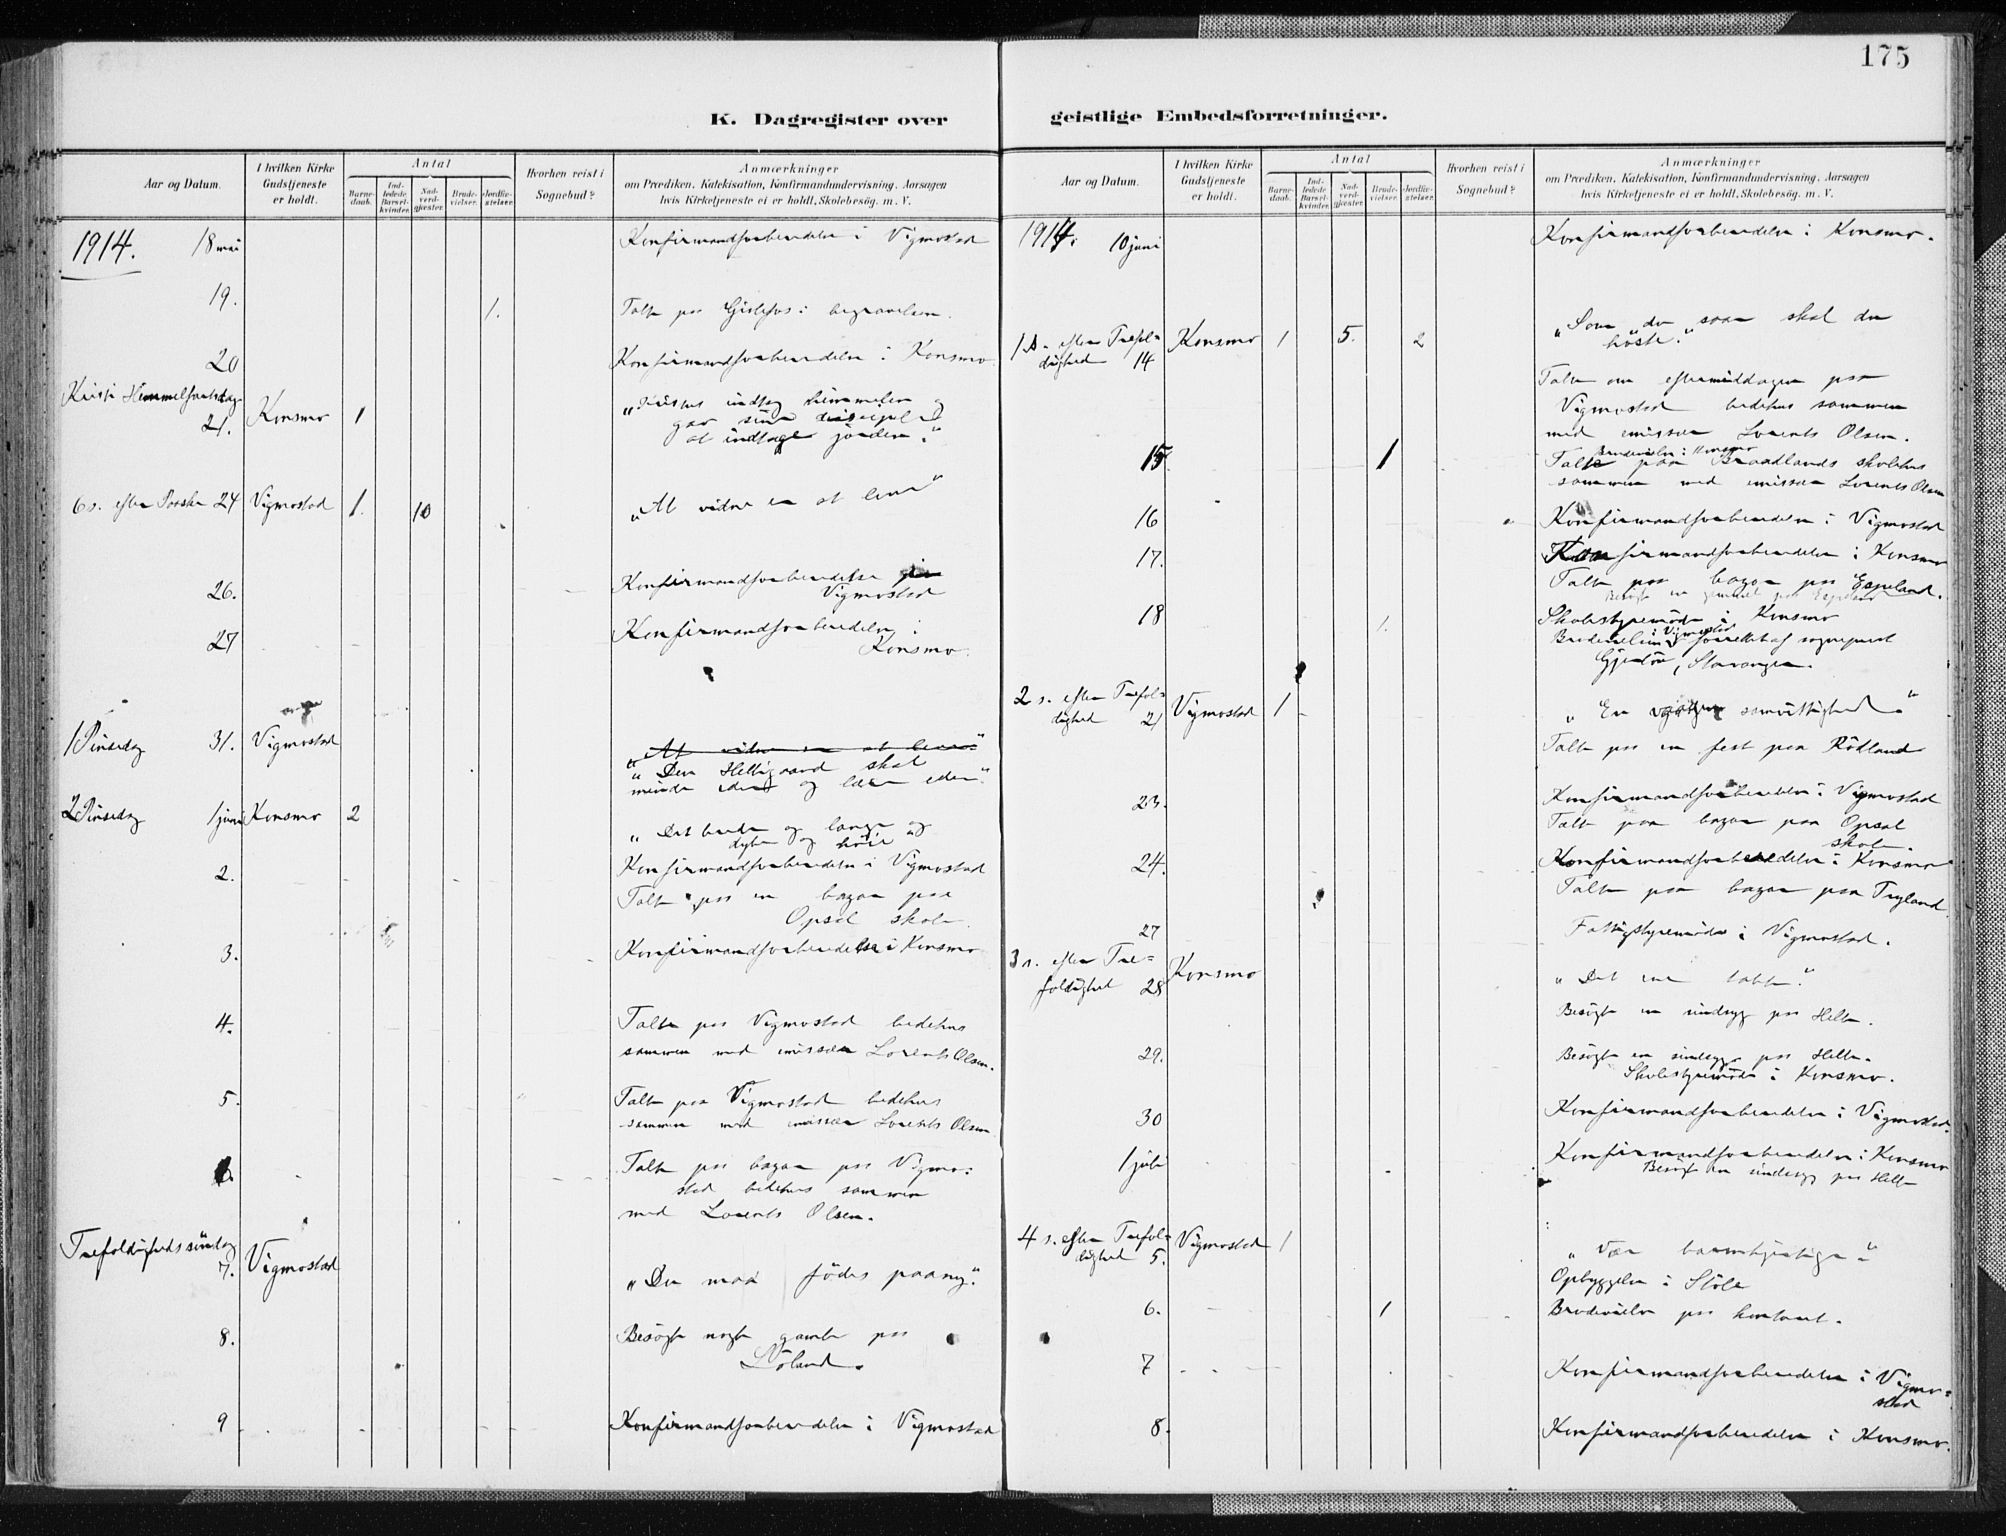 175
K. Dagregister over geistlige Embedsforretninger.
Aar og Datum.
I hvilken Kirke Gudstjeneste er holdt.
Antal
Barnedaab.
Indledede Barselkvinder.
Nadverdgjæster.
Brudevielser.
Jordfæstelser.
Hvorhen reist i Sognebud?
Anmærkninger
om Prædiken, Katekisation, Konfirmandundervisning. Aarsagen
hvis Kirketjeneste ei er holdt, Skolebesøg. m. V.
1914. 18 mai Konfirmandforberedelse i Vigmostad
19. 1. Talte paa i begravelsen.
20 Konfirmandforberedelse i Konsmo
Kristi Himmelfartsdag
21. Konsmo 1 "Kristus indtog himmelen og
gav sine disciple
at indtage jorden."
6 s. efter Paaske 24 Vigmostad 1. 10 "At vidne er at leve"
26. Konfirmandforberedelse
Vigmostad
27 Konfirmandforberedelse i
Konsmo.
1 Pinsedag 31. Vigmostad "At vidne er at leve"
"Den Helligaand skal
minde eder og lære eder."
2 Pinsedag 1 juni Konsmo 2 "Det brede og lange og
dybe og høie"
2. Konfirmandforberedelse i Vigmostad
Talte paa en bazar paa
Opsal skole
3. Konfirmandforberedelse i Konsmo
4. Talte paa Vigmostad bedehus
sammen med emissær Lorents Olsen.
5. Talte paa Vigmostad bedehus
sammen med emissær Lorents Olsen
6. Talte paa bazar paa Vigmo-
stad bedehus sammen
med Lorents Olsen.
Trefoldighedssøndag
7. Vigmostad "Du maa fødes paany."
8. Besøgte nogle gamle paa
9 Konfirmandforberedelse i Vigmostad
Aar og Datum.
I hvilken Kirke Gudstjeneste er holdt.
Antal
Barnedaab.
Indledede Barselkvinder.
Nadverdgjæster.
Brudevielser.
Jordfæstelser.
Hvorhen reist i Sognebud?
Anmærkninger
om Prædiken, Katekisation, Konfirmandundervisning. Aarsagen
hvis Kirketjeneste ei er holdt, Skolebesøg. m. V.
1914. 10 juni Konfirmandforberedelse i Konsmo.
1 s. efter Trefol-
dighed 14 Konsmo 1 5. 2 "Som du saar skal du
høste."
Talte om eftermiddagen paa
Vigmostad bedehus sammen
med emissær Lorents Olsen.
15 1 Brudevielse i Konsmo
Talte paa Braadlands skolehus
sammen med emissær Lorents Olsen
16 Konfirmandforberedelse i Vigmostad
17. Konfirmandforberedelse i Konsmo
Talte paa bazar paa Espeland.
Besøgte en gammel paa Espeland
18 1. Skolestyremøde i Konsmo
Brudevielse i Vigmostad forrettet af sogneprest
Stavanger.
2 s. efter Trefol-
dighed 21 Vigmostad 1 "En samvittighed"
Talte paa en fest paa Rødland
23. Konfirmandforberedelse i Vigmostad
Talte paa bazar paa Opsal
skole.
24. Konfirmandforberedelse i Konsmo
Talte paa bazar paa Tryland
27 Fattigstyremøde i Vigmostad.
3 s. efter Tre-
foldighed 28 Konsmo "Det ene tabte."
Besøgte en sindsyg paa Helle.
29. Besøgte en sindsyg paa Helle.
Skolestyremøde i Konsmo.
30 Konfirmandforberedelse i Vigmostad.
1 juli Konfirmandforberedelse i Konsmo
Besøgte en sindsyg paa Helle
4 s. efter Trefol-
dighed 5. Vigmostad 1 "Vær barmhjertige"
Opbyggelse i Støle
6. 1 Brudevielse paa kontoret.
7 Konfirmandforberedelse i Vigmo-
stad
8. Konfirmandforberedelse i Konsmo.